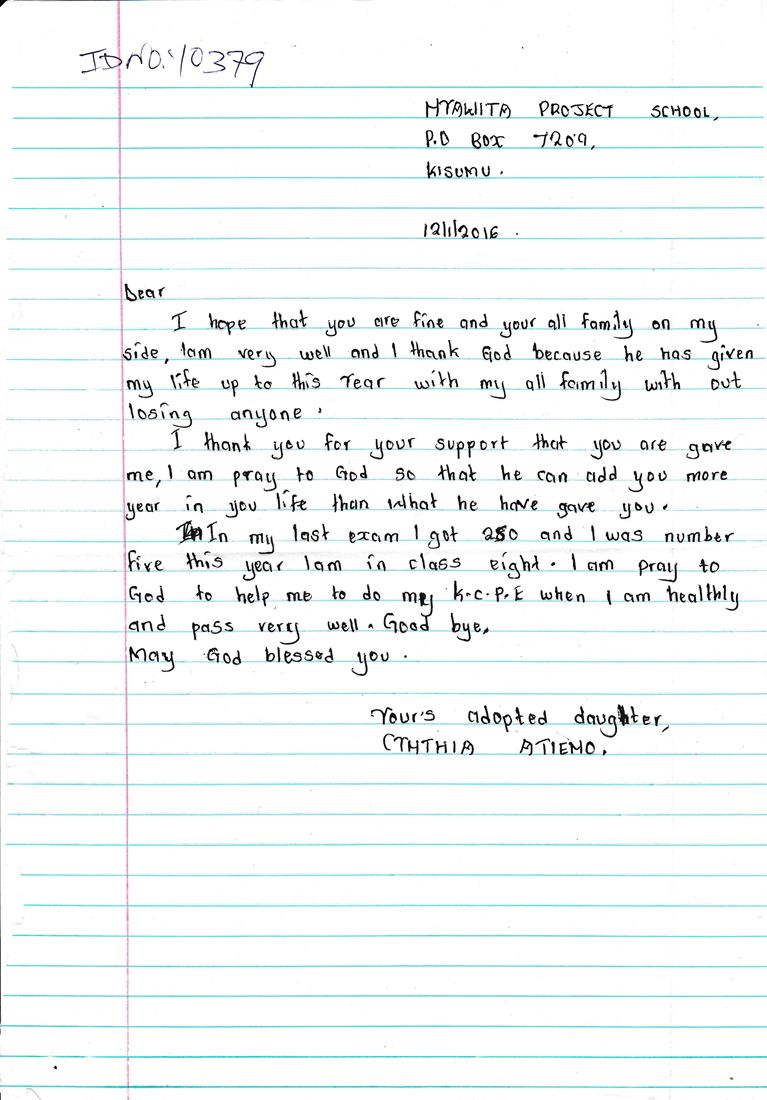 IDNO: 10379
NYAWITA PROJECT SCHOOL,
P.O BOX 7209,
KISUMU.
12/1/2016.
Dear
I hope that you are fine and your all family on my
side, Iam very well and I thank God because he has given
my life up to this Year with my all family with out
losing anyone.
I thank you for your support that you are gave
me, I am pray to God so that he can add you more
year in you life than what he have gave you.
In my last exam I got 250 and I was number
five this year Iam in class eight. I am pray to
God to help me to do my K.C.P.E when I am healthly
and pass very well. Good bye,
May God blessed you.
Your's adopted daughter,
CYNTHIA ATIENO.